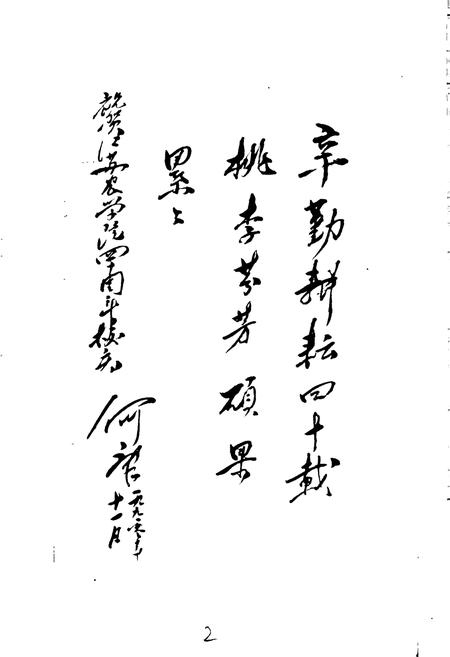 辛勤耕耘四十载
桃李芬芳硕果
累々
祝贺江苏农学院四十周年校庆
何康
一九九二年
十一月
2